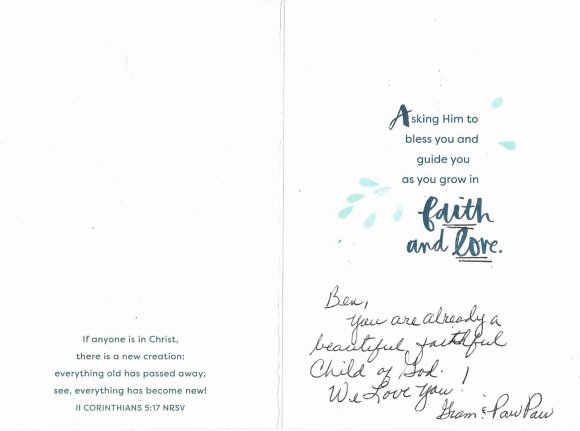 If anyone is in Christ,
there is a new creation:
everything old has passed away;
see, everything has become new!
II CORINTHIANS 5:17 NRSV
Asking Him to
bless you and
guide you
as you grow in
faith
and love.
Ben,
You are already a
beautiful, faithful
Child of God.
We Love You!
Gram & PawPaw